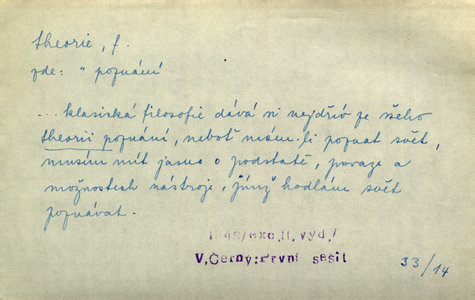 theorie, f.
zde: " poznání
... klasická filosofie dává si nejdřív ze všeho
theorii poznání, neboť mám-li poznat svět,
musím mít jasno o podstatě, povaze a
možnostech nástroje, jímž hodlám svět
poznávat.
1948/exc. II. vyd./
V. Černý: První sešit
33/14